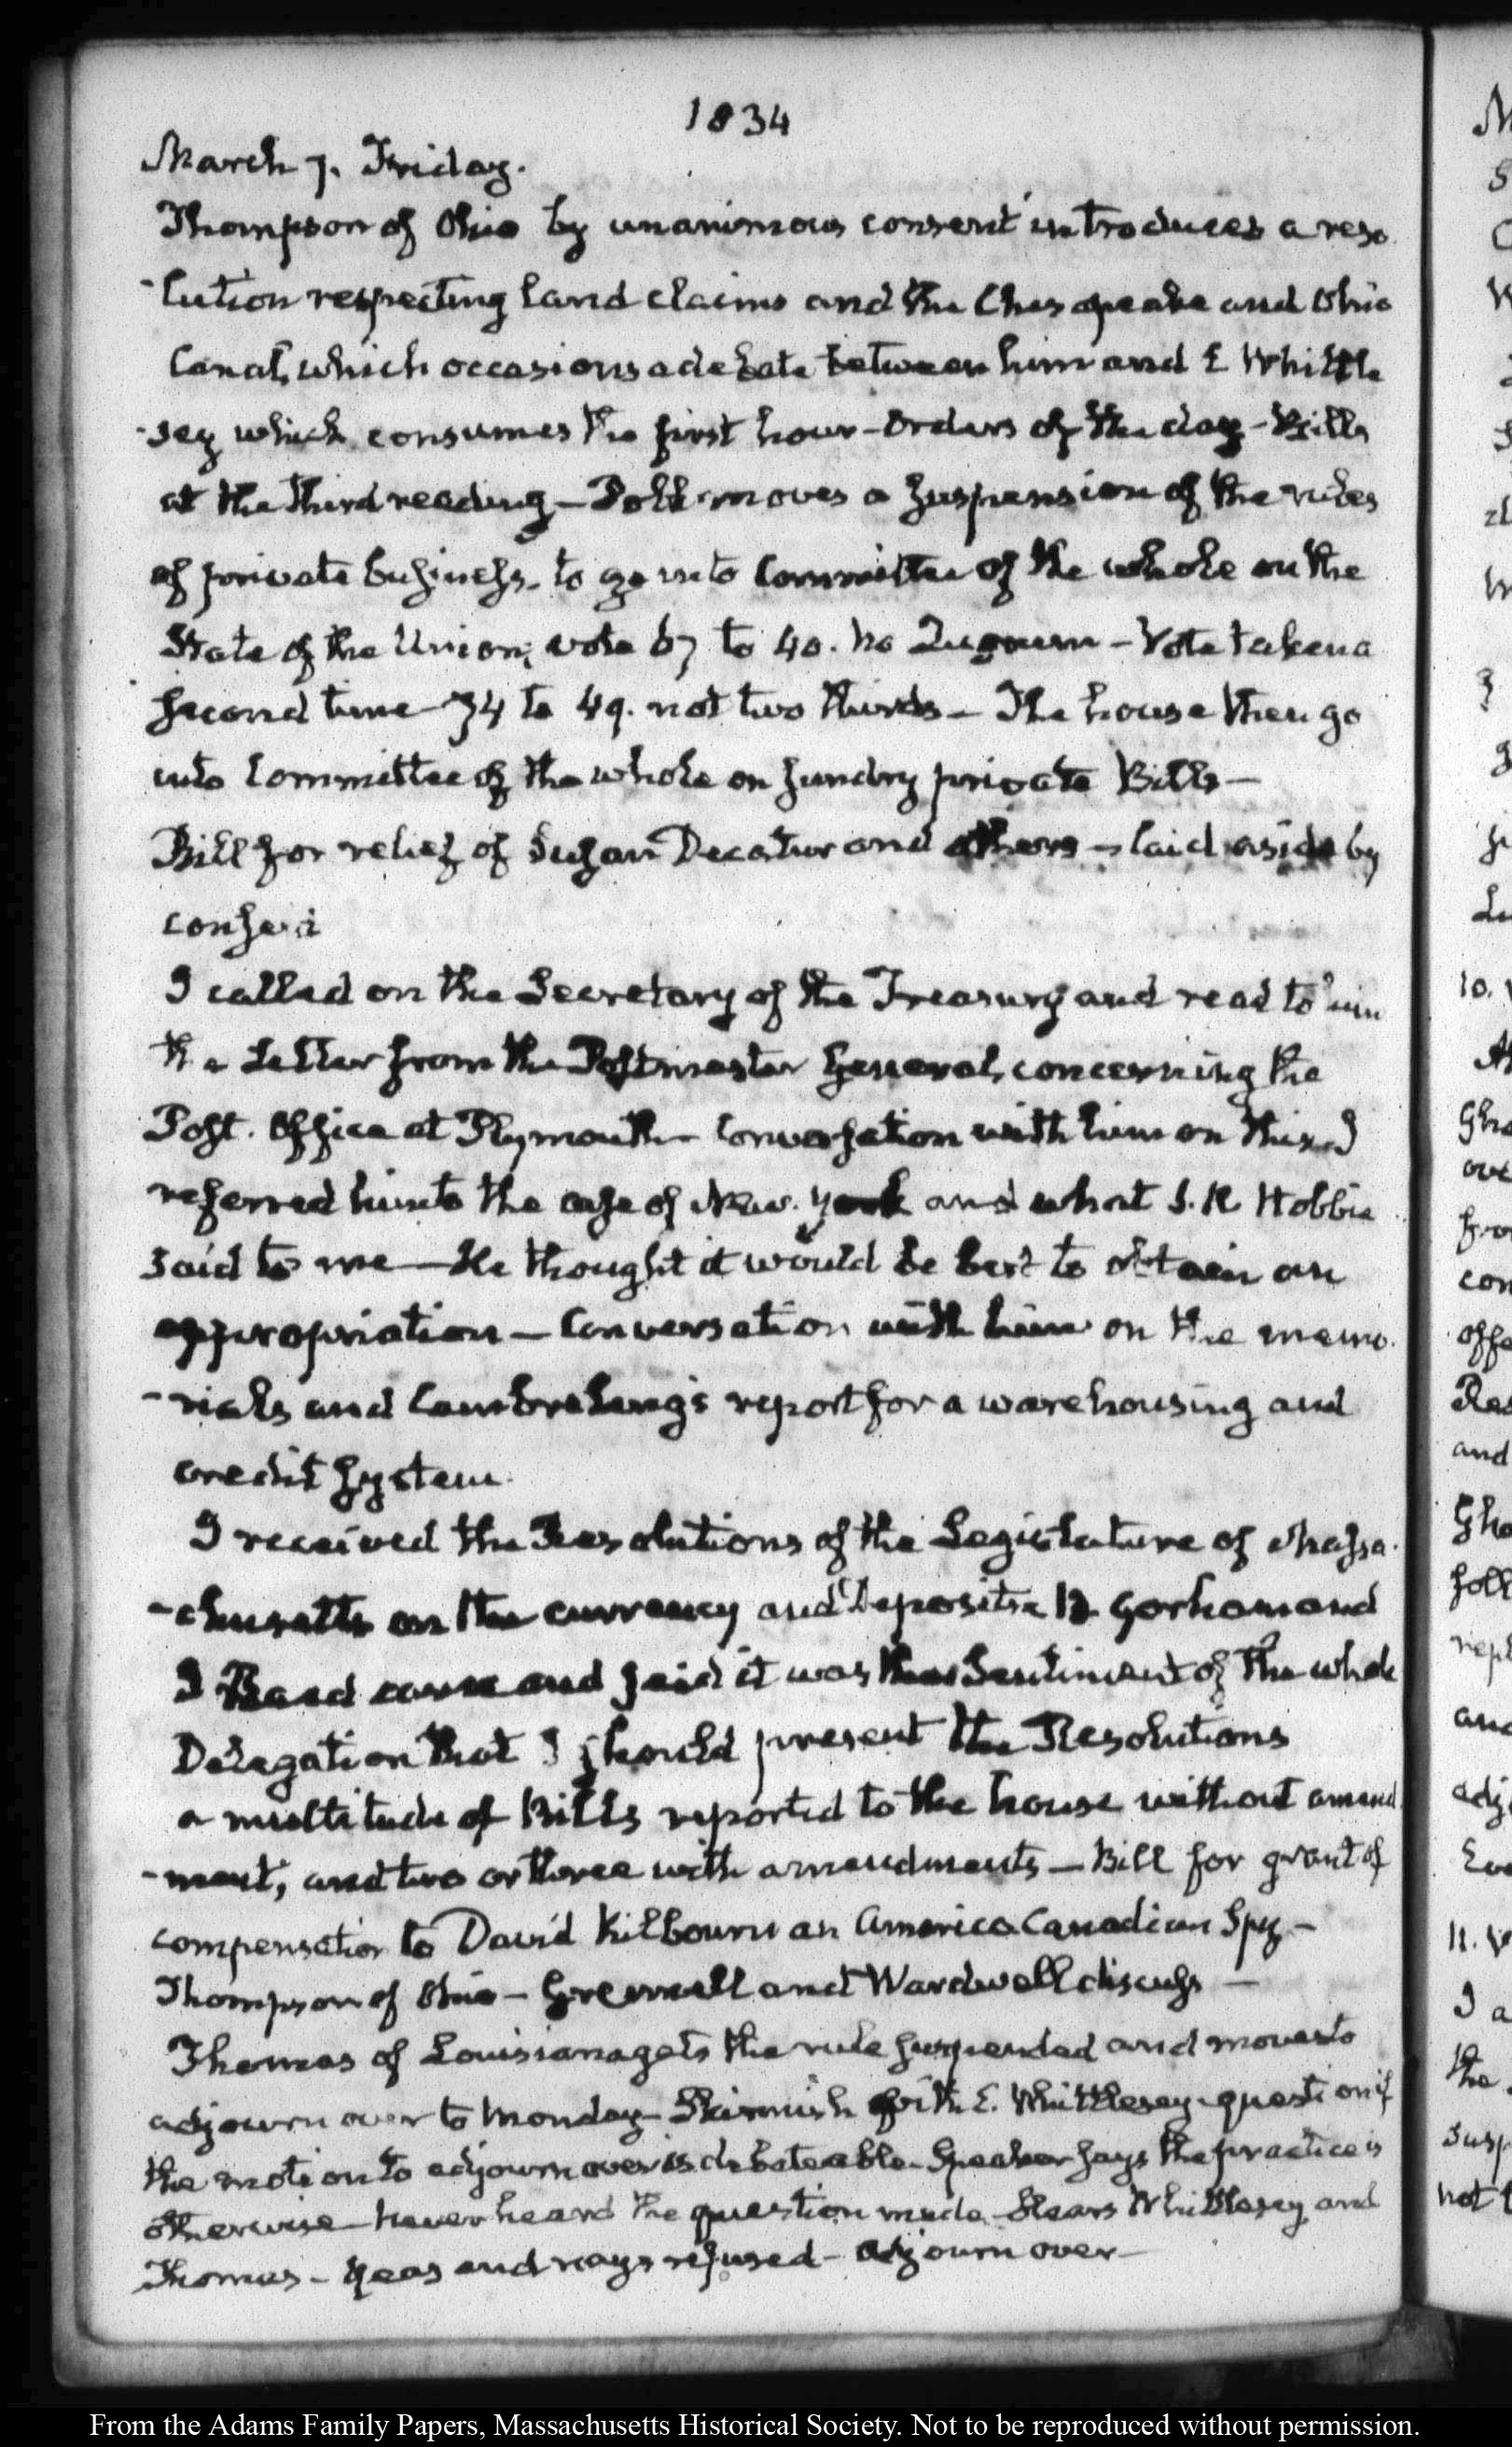 1834
March 7. Friday.
Thompson of Ohio by unanimous consent introduces a reso
-lution respecting land claims and the Chesapeake and Ohio
Canal, which occasions a debate between him and E Whittle
-sey which consumes the first hour - Orders of the day - Bills
at the third reading - Polk moves a suspension of the rules
of private business, to go into Committee of the whole on the
State of the Union; vote 67 to 40. no Quorum - Vote taken a
second time 74 to 49. not two thirds - The house then go
into Committee of the whole on sundry private Bills -
Bill for relief of Susan Decatur and others - laid aside by
consent
I called on the Secretary of the Treasury and read to him
the Letter from the Postmaster General, concerning the
Post. Office at Plymouth - Conversation with him on this. I
referred him to the case of New. York and what S. R Hobbie
said to me - He thought it would be best to obtain an
appropriation - Conversation with him on the memo.
-rials and Cambreleng's report for a warehousing and
credit system.
I received the Resolutions of the Legislature of Massa.
-chusetts on the currency and Deposits. B. Gorham and
J Reed came and said it was the Sentiment of the whole
Delegation that I should present the Resolutions
a multitude of Bills reported to the house without amend
-ment, and two or three with amendments - Bill for grant of
compensation to David Kilbourn an America. Canadian Spy -
Thompson of Ohio - Grennell and Wardwell discuss -
Thomas of Louisiana gets the rule suspended and moves to
adjourn over to Monday - Skirmish with E. Whittlesey - question if
the motion to adjourn over is debateable - Speaker says the practice is
otherwise - never heard the question made - Hears Whittlesey, and
Thomas - Yeas and nays refused - adjourn over -
From the Adams Family Papers, Massachusetts Historical Society. Not to be reproduced without permission.